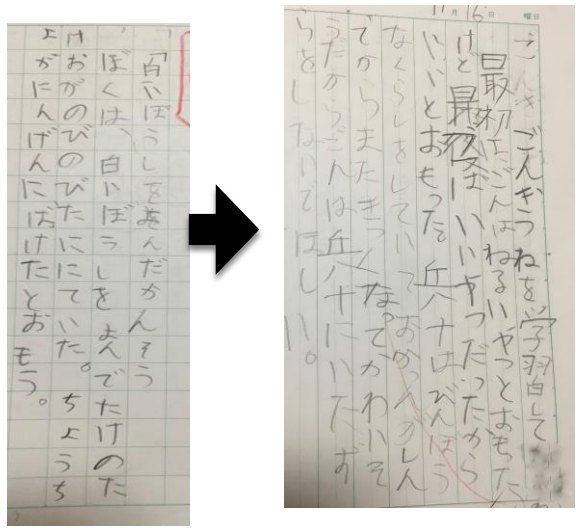 「白いぼうしを読んだかんそう
ぼくは、白いぼうしをよんでたけのた
けおがのびのびたににていた。ちょうち
ょがにんげんにばけたとおもう。
11月16日 曜日
ごんぎ ごんぎつねを学習して
最初はごんはわるいやつとおもった
けど最後はいいやつだったから
いいとおもった。兵十はびんぼう
なくらしをしていてしん
でからまたきつくなってかわいそ
うだからごんは兵十にいたず
らをしないでほしい。